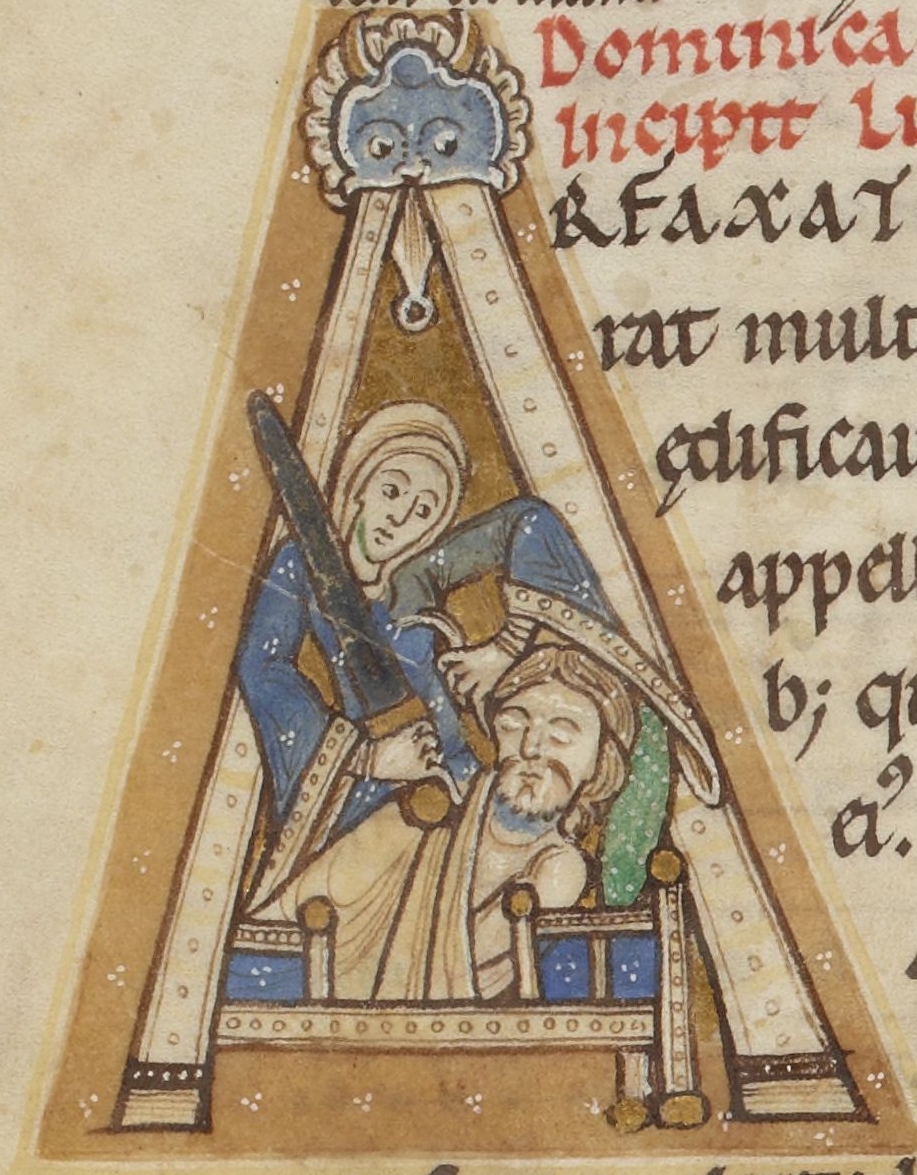 Dominica
Incipit Li
RFAXAT
rat mult
ędificau
appell
b; qu